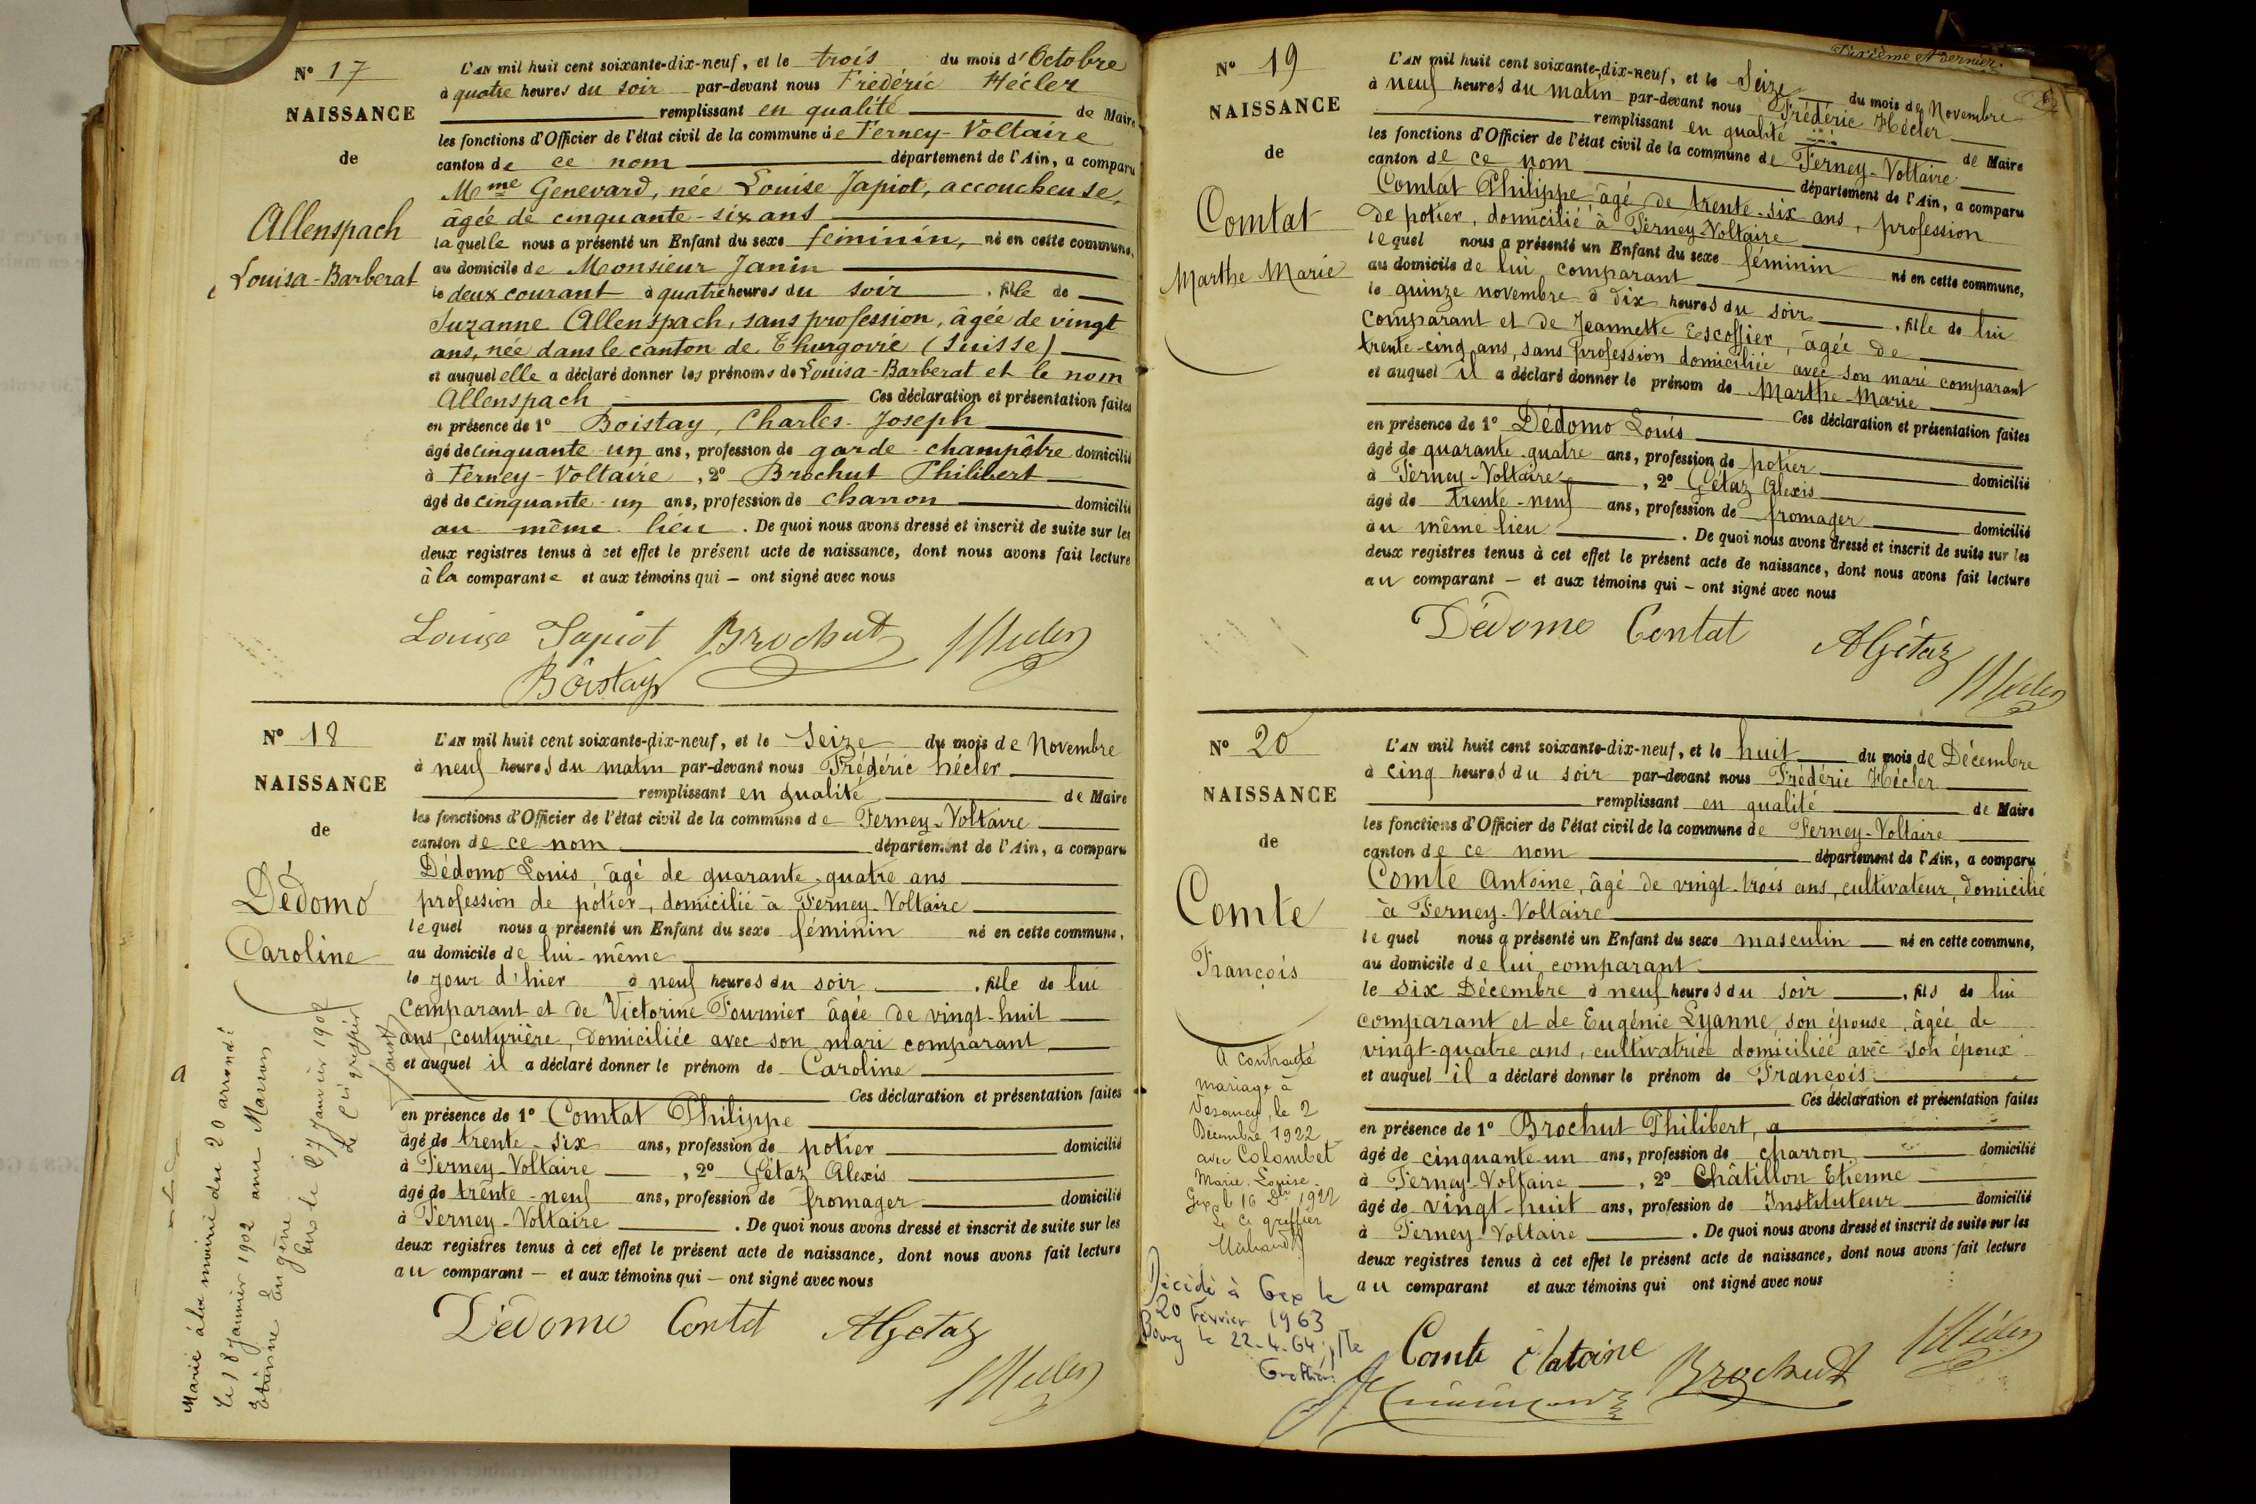 N° 17
NAISSANCE
de
Allenspach
Louisa-Barberat
L'AN mil huit cent soixante-dix-neuf, et le trois du mois d'Octobre
à quatre heures du soir par-devant nous Frédéric Hécler
remplissant en qualité de Maire
les fonctions d'Officier de l'état civil de la commune de Ferney-Voltaire
canton de ce nom département de l'Ain, a comparu
Mme Genevard, née Louise Japiot, accoucheuse,
âgée de cinquante-six ans
laquelle nous a présenté un Enfant du sexe féminin, né en cette commune,
au domicile de Monsieur Janin
le deux courant à quatre heures du soir, fille de
Suzanne Allenspach, sans profession, âgée de vingt
ans, née dans le canton de Thurgovie (Suisse)
et auquel elle a déclaré donner les prénoms de Louisa-Barberat et le nom
Allenspach Ces déclaration et présentation faites
en présence de 1° Boistay, Charles-Joseph
âgé de cinquante-un ans, profession de garde-champêtre domicilié
à Ferney-Voltaire, 2° Brochut Philibert
âgé de cinquante-un ans, profession de charron domicilié
au même lieu. De quoi nous avons dressé et inscrit de suite sur les
deux registres tenus à cet effet le présent acte de naissance, dont nous avons fait lecture
à la comparante et aux témoins qui – ont signé avec nous
Louise Japiot Brochut Hécler
Boistay
N° 18
NAISSANCE
de
Dédomo
Caroline
L'AN mil huit cent soixante-dix-neuf, et le Seize du mois de Novembre
à neuf heures du matin par-devant nous Frédéric hécler
remplissant en qualité de Maire
les fonctions d'Officier de l'état civil de la commune de Ferney-Voltaire
canton de ce nom département de l'Ain, a comparu
Dédomo Louis, âgé de quarante-quatre ans
profession de potier, domicilié à Ferney-Voltaire
lequel nous a présenté un Enfant du sexe féminin né en cette commune,
au domicile de lui-même
le jour d'hier à neuf heures du soir, fille de lui
comparant et de Victorine Fournier âgée de vingt-huit
ans, couturière, domiciliée avec son mari comparant
et auquel il a déclaré donner le prénom de Caroline
Ces déclaration et présentation faites
en présence de 1° Comtat Philippe
âgé de trente-six ans, profession de potier domicilié
à Ferney-Voltaire, 2° Gétaz Alexis
âgé de trente-neuf ans, profession de fromager domicilié
à Ferney-Voltaire. De quoi nous avons dressé et inscrit de suite sur les
deux registres tenus à cet effet le présent acte de naissance, dont nous avons fait lecture
au comparant – et aux témoins qui – ont signé avec nous
Dédomo Contat AGétaz
Hécler
Marié à la mairie du 20 arrondt
le 18 Janvier 1902 avec Masson
Etienne Eugène
Gex le 27 Janvier 1902
Le Cis greffier
N° 19
NAISSANCE
de
Comtat
Marthe Marie
Dixième et dernier.
L'AN mil huit cent soixante-dix-neuf, et le Seize du mois de Novembre
à neuf heures du matin par-devant nous Frédéric Hécler
remplissant en qualité de Maire
les fonctions d'Officier de l'état civil de la commune de Ferney-Voltaire
canton de ce nom département de l'Ain, a comparu
Comtat Philippe, âgé de trente-six ans, profession
de potier, domicilié à Ferney-Voltaire
lequel nous a présenté un Enfant du sexe féminin né en cette commune,
au domicile de lui comparant
le quinze novembre à dix heures du soir, fille de lui
comparant et de Jeannette Escoffier, âgée de
trente-cinq ans, sans profession domiciliée avec son mari comparant
et auquel il a déclaré donner le prénom de Marthe-Marie
Ces déclaration et présentation faites
en présence de 1° Dédomo Louis
âgé de quarante-quatre ans, profession de potier domicilié
à Ferney-Voltaire, 2° Gétaz Alexis
âgé de trente-neuf ans, profession de fromager domicilié
au même lieu. De quoi nous avons dressé et inscrit de suite sur les
deux registres tenus à cet effet le présent acte de naissance, dont nous avons fait lecture
au comparant – et aux témoins qui – ont signé avec nous
Dédomo Contat AGétaz
Hécler
N° 20
NAISSANCE
de
Comte
François
L'AN mil huit cent soixante-dix-neuf, et le huit du mois de Décembre
à cinq heures du soir par-devant nous Frédéric Hécler
remplissant en qualité de Maire
les fonctions d'Officier de l'état civil de la commune de Ferney-Voltaire
canton de ce nom département de l'Ain, a comparu
Comte Antoine, âgé de vingt-trois ans, cultivateur, domicilié
à Ferney-Voltaire
lequel nous a présenté un Enfant du sexe masculin né en cette commune,
au domicile de lui comparant
le six Décembre à neuf heures du soir, fils de lui
comparant et de Eugénie Lyanne, son épouse, âgée de
vingt-quatre ans, cultivatrice domiciliée avec son époux
et auquel il a déclaré donner le prénom de François
Ces déclaration et présentation faites
en présence de 1° Brochut Philibert, a
âgé de cinquante-un ans, profession de charron domicilié
à Ferney-Voltaire, 2° Châtillon Etienne
âgé de vingt-huit ans, profession de Instituteur domicilié
à Ferney-Voltaire. De quoi nous avons dressé et inscrit de suite sur les
deux registres tenus à cet effet le présent acte de naissance, dont nous avons fait lecture
au comparant et aux témoins qui ont signé avec nous
Comte Antoine Brochut Hécler
A contracté
mariage à
Vesancy, le 2
Décembre 1922
avec Colombet
Marie-Louise.
Gex le 16 Dbre 1922
Le Cis greffier
Décédé à Gex le
20 Février 1963
Bourg le 22-4-64
Greffier